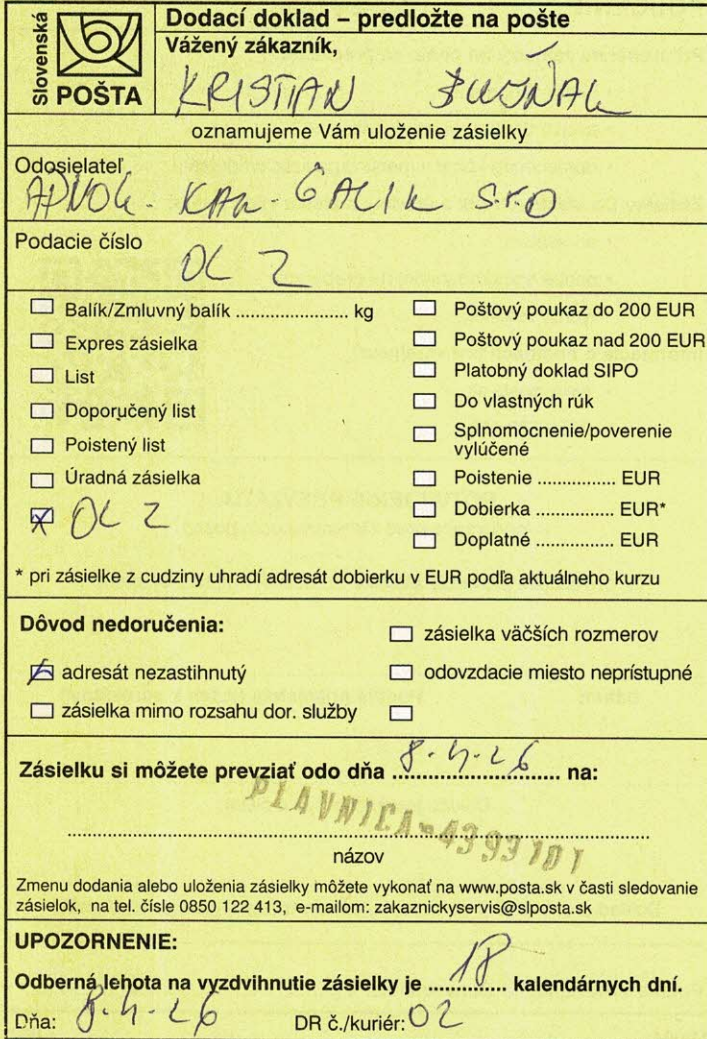 Slovenská
POŠTA
Dodací doklad – predložte na pošte
Vážený zákazník,
KRISTIAN
oznamujeme Vám uloženie zásielky
Odosielateľ
GALIK S.R.O
Podacie číslo
OL Z
Balík/Zmluvný balík ....................... kg
Expres zásielka
List
Doporučený list
Poistený list
Úradná zásielka
OL Z
Poštový poukaz do 200 EUR
Poštový poukaz nad 200 EUR
Platobný doklad SIPO
Do vlastných rúk
Splnomocnenie/poverenie
vylúčené
Poistenie ................ EUR
Dobierka ................ EUR*
Doplatné ................ EUR
* pri zásielke z cudziny uhradí adresát dobierku v EUR podľa aktuálneho kurzu
Dôvod nedoručenia:
adresát nezastihnutý
zásielka mimo rozsahu dor. služby
zásielka väčších rozmerov
odovzdacie miesto neprístupné
Zásielku si môžete prevziať odo dňa 8.4.26 na:
PLAVNICA-4393101
názov
Zmenu dodania alebo uloženia zásielky môžete vykonať na www.posta.sk v časti sledovanie
zásielok, na tel. čísle 0850 122 413, e-mailom: zakaznickyservis@slposta.sk
UPOZORNENIE:
Odberná lehota na vyzdvihnutie zásielky je 18 kalendárnych dní.
Dňa: 8.4.26 DR č./kuriér: 02